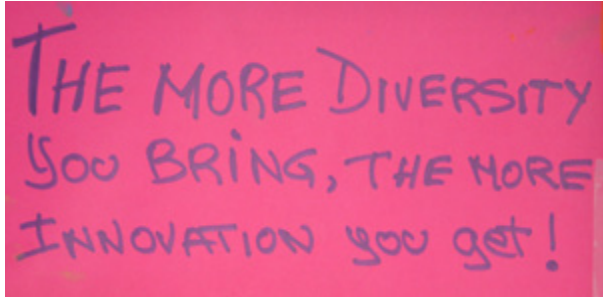 THE MORE DIVERSITY
you BRiNG, THE MORE
INNOVATION you get!